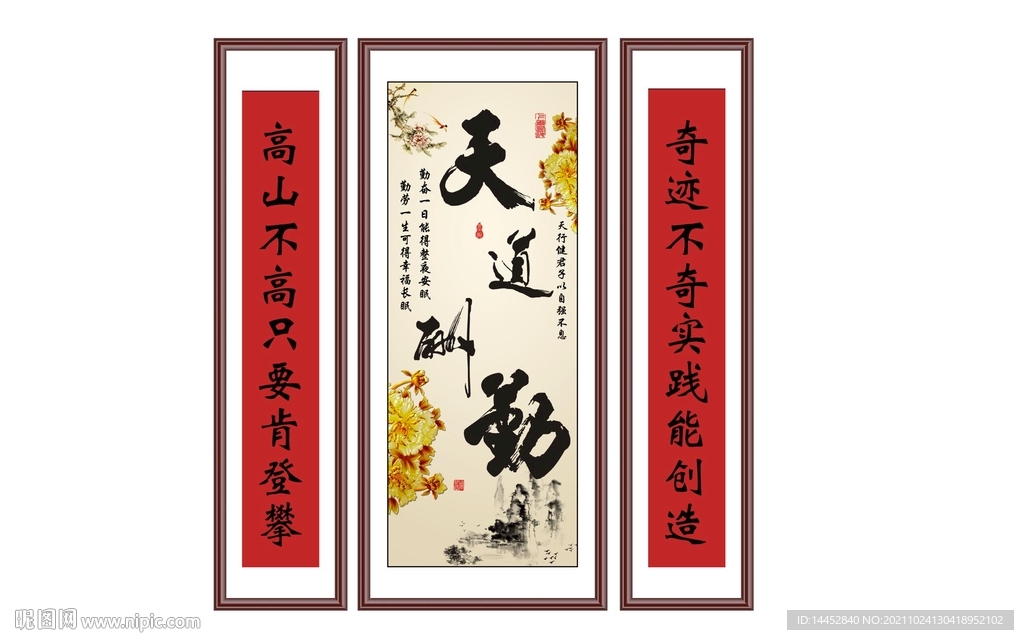 奇迹不奇实践能创造
天道酬勤
天行健君子以自强不息
勤奋一日能得整夜安眠
勤劳一生可得幸福长眠
高山不高只要肯登攀
昵图网 www.nipic.com
ID:14452840 NO:20211024130418952102